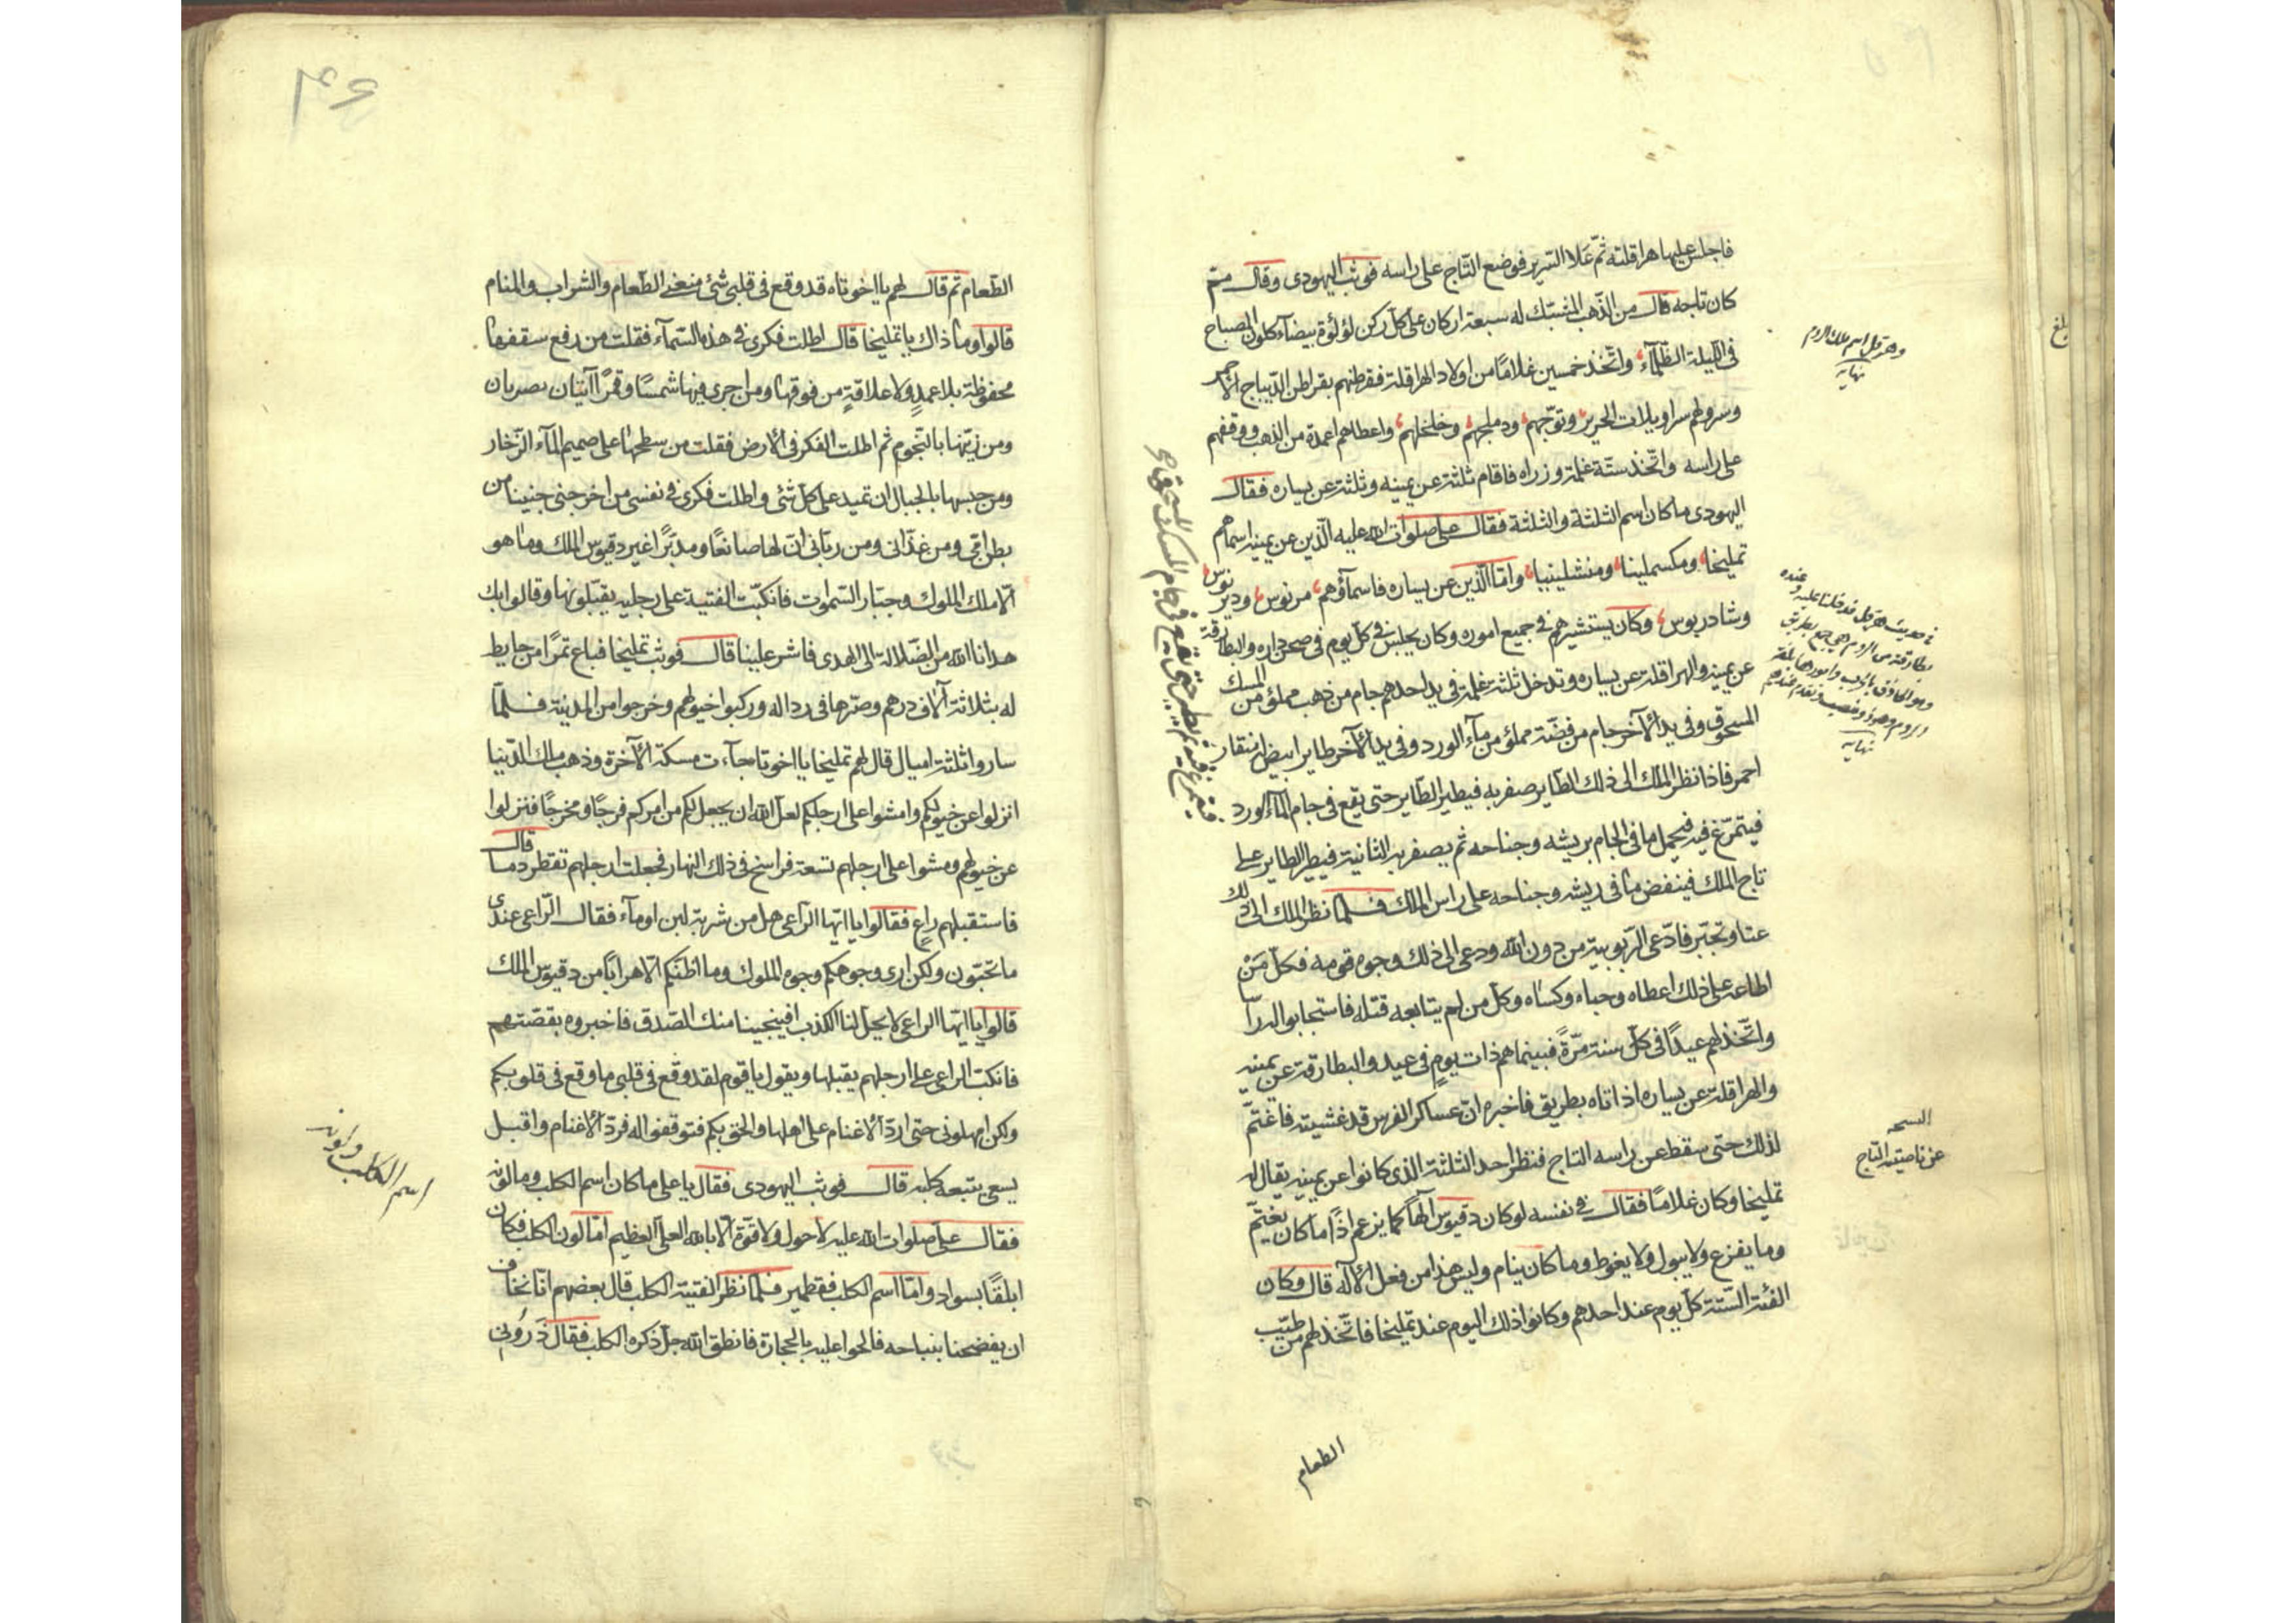 فاجلس عليها هراقلته ثمّ علا السرير فوضع التاج على راسه فوثب اليهودى وقال ممّ
كان تاجه قال من الذّهب المشبّك له سبعة اركان على كلّ ركن لؤلؤة بيضآء كلون المصباح
فى اللّيلة الظّلمآء واتّخذ خمسين غلامًا من اولاد الهراقلة فقرطهم بقراطق الدّيباج الاحمر
وسرولهم سراويلات الحرير وتوّجهم ودملجهم وخلخلهم واعطاهم اعمدة من الذهب ووقفهم
على راسه واتّخذ ستّة غلمة وزراه فاقام ثلثة عن يمينه وثلثة عن يساره فقال
اليهودى ما كان اسم الثلثة والثلثة فقال على صلوات الله عليه الّذين عن يمينه اسماهم
تمليخا ومكسملينا ومنشلينيا وامّا الّذين عن يساره فاسمآؤهم مرنوس وديرنوس
وشادريوس وكان يستشيرهم فى جميع اموره وكان يجلس فى كلّ يوم فى صحن داره والبطارقة
عن يمينه والهراقلة عن يساره وتدخل ثلثة غلمة فى يد احدهم جام من ذهب مملؤ من المسك
المسحوق وفى يد الآخر جام من فضّة مملؤ من مآء الورد وفى يد الآخر طاير ابيض له منقار
احمر فاذا نظر الملك الى ذلك الطاير صفر به فيطير الطاير حتى يقع فى جام المآء الورد
فيتمرّغ فيه فيحمل ما فى الجام بريشه وجناحه ثم يصفر به الثانية فيطير الطاير على
تاج الملك فينفض ما فى ريشه وجناحه على راس الملك فلمّا نظر الملك الى ذلك
عتا وتجبّر فادّعى الرّبوبية من دون الله ودعى الى ذلك وجوه قومه فكلّ مَنْ
اطاعه على ذلك اعطاه وحباه وكساه وكلّ من لم يتابعه قتله فاستجابوا له راسا
واتّخذ لهم عيدًا فى كلّ سنة مرّةً فبينما هم ذات يومٍ فى عيد والبطارقة عن يمينه
والهراقلة عن يساره اذ اتاه بطريق فاخبره انّ عساكر الفرس قد غشيته فاغتمّ
لذلك حتى سقط عن راسه التاج فنظر احد الثلثة الذى كانوا عن يمينه يقال له
تمليخا وكان غلامًا فقال فى نفسه لو كان دقيوس الهًا كما يزعم اذًا ما كان يغتمّ
وما يفزع ولا يبول ولا يغوط وما كان ينام وليس هذا من فعل الاله قال وكان
الفئة الستّة كلّ يوم عند احدهم وكانوا ذلك اليوم عند تمليخا فاتّخذ لهم من طيّب
الطعام
وهرقل اسم ملك الروم
نهايه
فى حديث هرقل فدخلنا عليه وعنده
بطارقة من الروم هى جمع بطريق
وهو الحاذق بالحرب وامورها بلغة
الروم وهو ذو منصب وتقدّم عندهم
نهايه
عن ناصيته التاج
بلغ
فيتمرغ فيه ثم يطير حتى يقع فى جام المسك المسحوق
۳۶
الطّعام ثم قال لهم يا اخوتاه قد وقع فى قلبى شئ منعنى الطّعام والشراب والمنام
قالوا وما ذاك يا تمليخا قال اطلت فكرى فى هذه السّمآء فقلت من رفع سقفها
محفوظة بلا عمدٍ ولا علاقةٍ من فوقها ومن اجرى فيها شمسًا وقمرًا آيتان مبصرتان
ومن زيّنها بالنّجوم ثم اطلت الفكر فى الارض فقلت من سطحها على صميم المآء الزّخار
ومن حبسها بالجبال ان تميد على كلّ شئ واطلت فكرى فى نفسى من اخرجنى جنينا من
بطن امّى ومن غذّانى ومن ربّانى انّ لها صانعًا ومدبّرًا غير دقيوس الملك وما هو
الّا ملك الملوك وجبّار السّموات فانكبّت الفتية على رجليه يقبّلونها وقالوا بك
هدانا الله من الضّلالة الى الهدى فاشر علينا قال فوثب تمليخا فباع تمرًا من حايط
له بثلاثة آلاف درهم وصرّها فى ردائه وركبوا خيولهم وخرجوا من المدينة فلمّا
ساروا ثلثة اميال قال لهم تمليخا يا اخوتاه جآءت مسكنة الآخرة وذهب ملك الدّنيا
انزلوا عن خيولكم وامشوا على ارجلكم لعلّ الله ان يجعل لكم من امركم فرجًا ومخرجًا فنزلوا
عن خيولهم ومشوا على ارجلهم تسعة فراسخ فى ذلك النهار فجعلت ارجلهم تقطر دما قال
فاستقبلهم راعٍ فقالوا يا ايّها الرّاعى هل من شربة لبن او مآء فقال الرّاعى عندى
ما تحبّون ولكن ارى وجوهكم وجوه الملوك وما اظنّكم الّا هرابًا من دقيوس الملك
قالوا يا ايّها الراعى لا يحلّ لنا الكذب افينجينا منك الصّدق فاخبروه بقصّتهم
فانكبّ الراعى على ارجلهم يقبلها ويقول يا قوم لقد وقع فى قلبى ما وقع فى قلوبكم
ولكن امهلونى حتى اردّ الاغنام على اهلها والحق بكم فتوقفوا له فردّ الاغنام واقبل
يسعى يتبعه كلبه قال فوثب اليهودى فقال يا على ما كان اسم الكلب وما لونه
فقال على صلوات الله عليه لا حول ولا قوّة الّا بالله العلىّ العظيم امّا لون الكلب فكان
ابلقًا بسواد وامّا اسم الكلب فقطمير فلمّا نظر الفتية الكلب قال بعضهم انّا نخاف
ان يفضحنا بنباحه فالحوا عليه بالحجارة فانطق الله جلّ ذكره الكلب فقال ذَرُونى
اسم الكلب ولونه